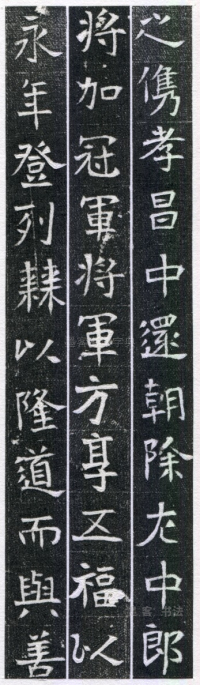 之儁孝昌中還朝除左中郎
將加冠軍將軍方享五福以
永年登列棘以隆道而與善